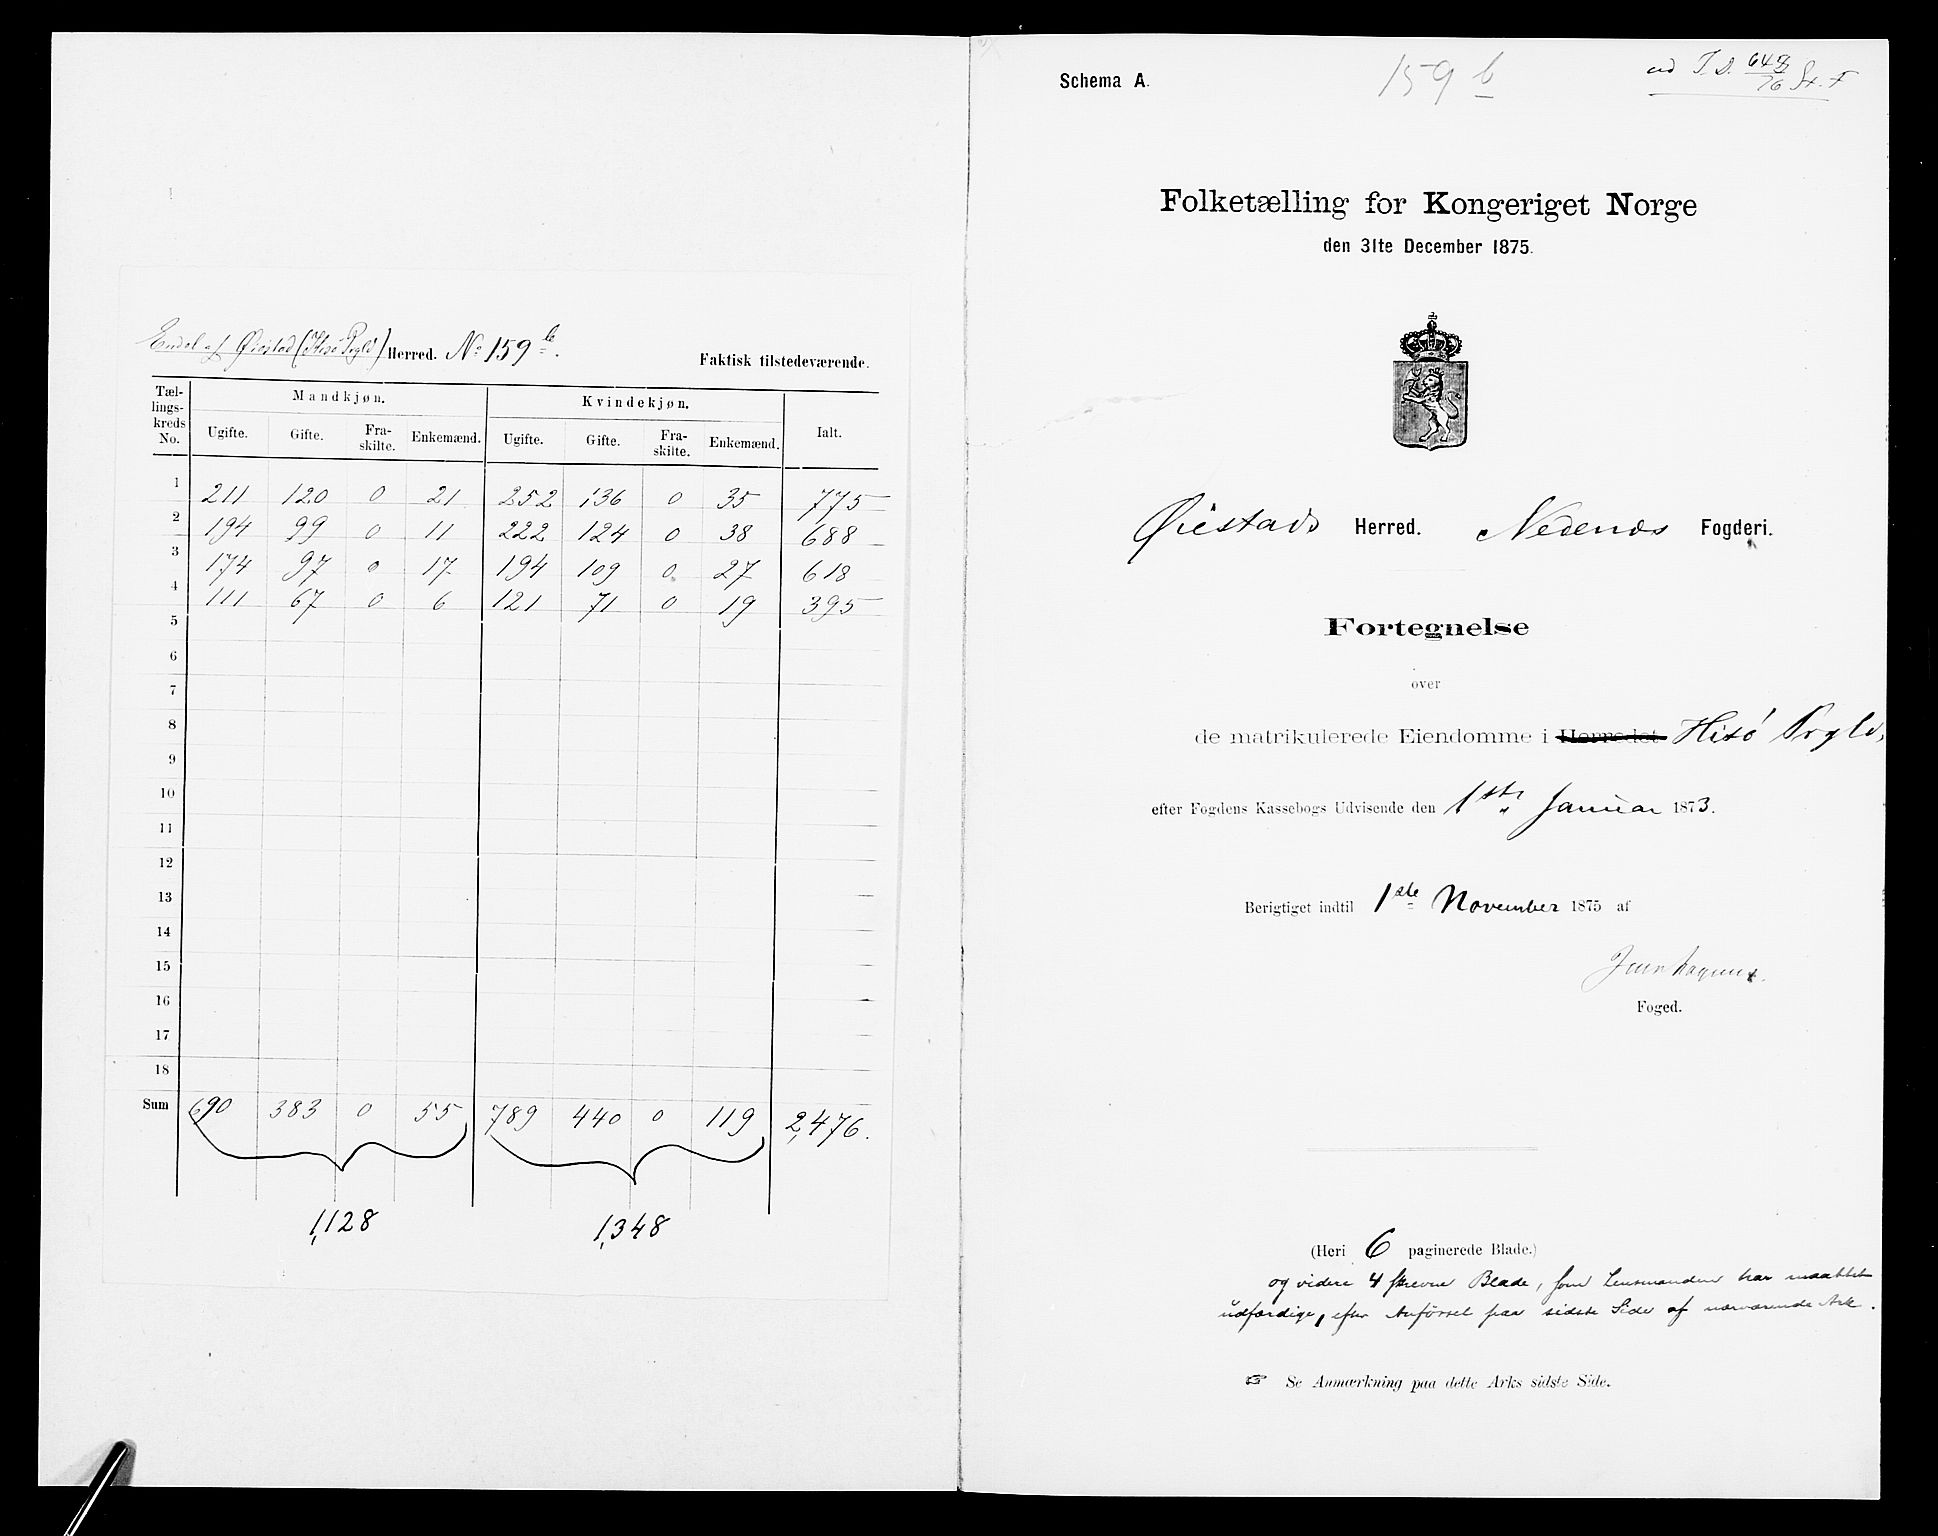 Endel af Øiestad (Hisø Prgld) Herred. No 159 b.
Faktisk tilstedeværende.
Tællingskreds No. Mandkjøn. Kvindekjøn. Ialt.
Ugifte. Gifte. Fraskilte. Enkemænd. Ugifte. Gifte. Fraskilte. Enkemænd.
1 211 120 0 21 252 136 0 35 775
2 194 99 0 11 222 124 0 38 688
3 174 97 0 17 194 109 0 27 618
4 111 67 0 6 121 71 0 19 395
5
6
7
8
9
10
11
12
13
14
15
16
17
18
Sum 690 383 0 55 789 440 0 119 2,476.
1,128 1,348
Schema A.
159 b
Folketælling for Kongeriget Norge
den 31te December 1875.
Øiestads Herred. Nedenæs Fogderi.
Fortegnelse
over
de matrikulerede Eiendomme i Herredet Hisø Prgld,
efter Fogdens Kassebogs Udvisende den 1ste Januar 1873.
Berigtiget indtil 1ste November 1875 af
Foged.
(Heri 6 paginerede Blade.)
og videre 4 skrevne Blade, som Lensmanden har maattet
udfærdige, efter Anførsel paa sidste Side af nærværende Ark.
☞ Se Anmærkning paa dette Arks sidste Side.